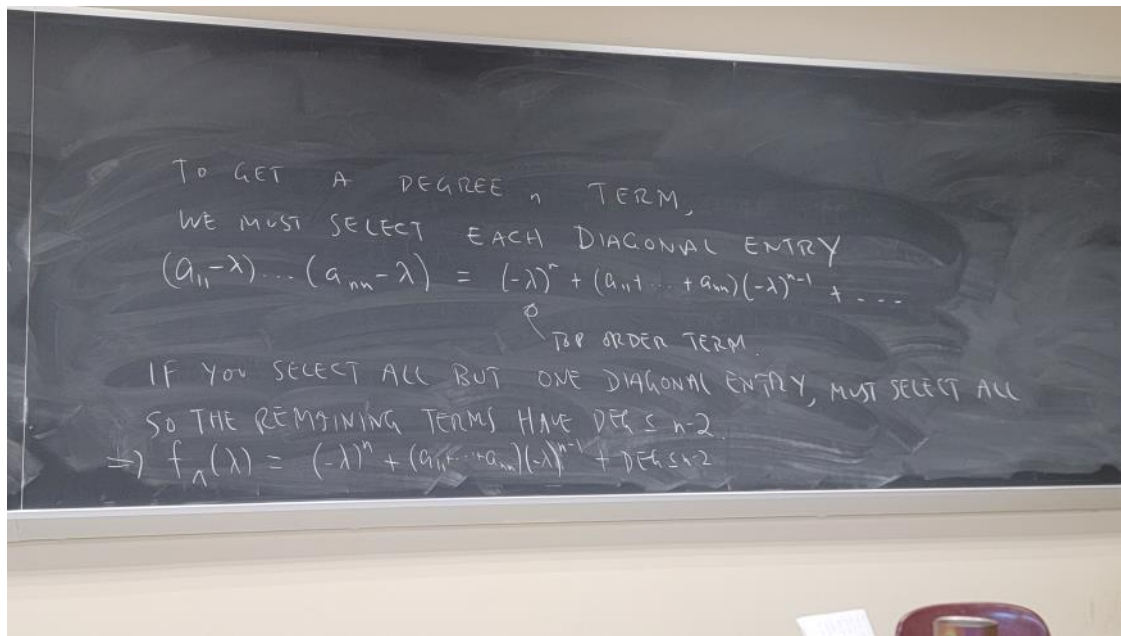 TO GET A DEGREE n TERM,
WE MUST SELECT EACH DIAGONAL ENTRY
(a₁₁-λ)...(aₙₙ-λ) = (-λ)ⁿ + (a₁₁+...+aₙₙ)(-λ)ⁿ⁻¹ + ...
TOP ORDER TERM.
IF YOU SELECT ALL BUT ONE DIAGONAL ENTRY, MUST SELECT ALL
SO THE REMAINING TERMS HAVE DEG ≤ n-2.
⇒ f_A(λ) = (-λ)ⁿ + (a₁₁+...+aₙₙ)(-λ)ⁿ⁻¹ + DEG ≤ n-2